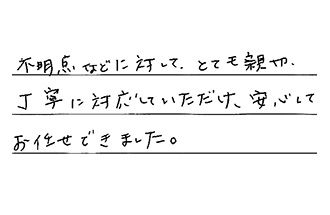 不明点などに対して、とても親切、
丁寧に対応していただけ、安心して
お任せできました。